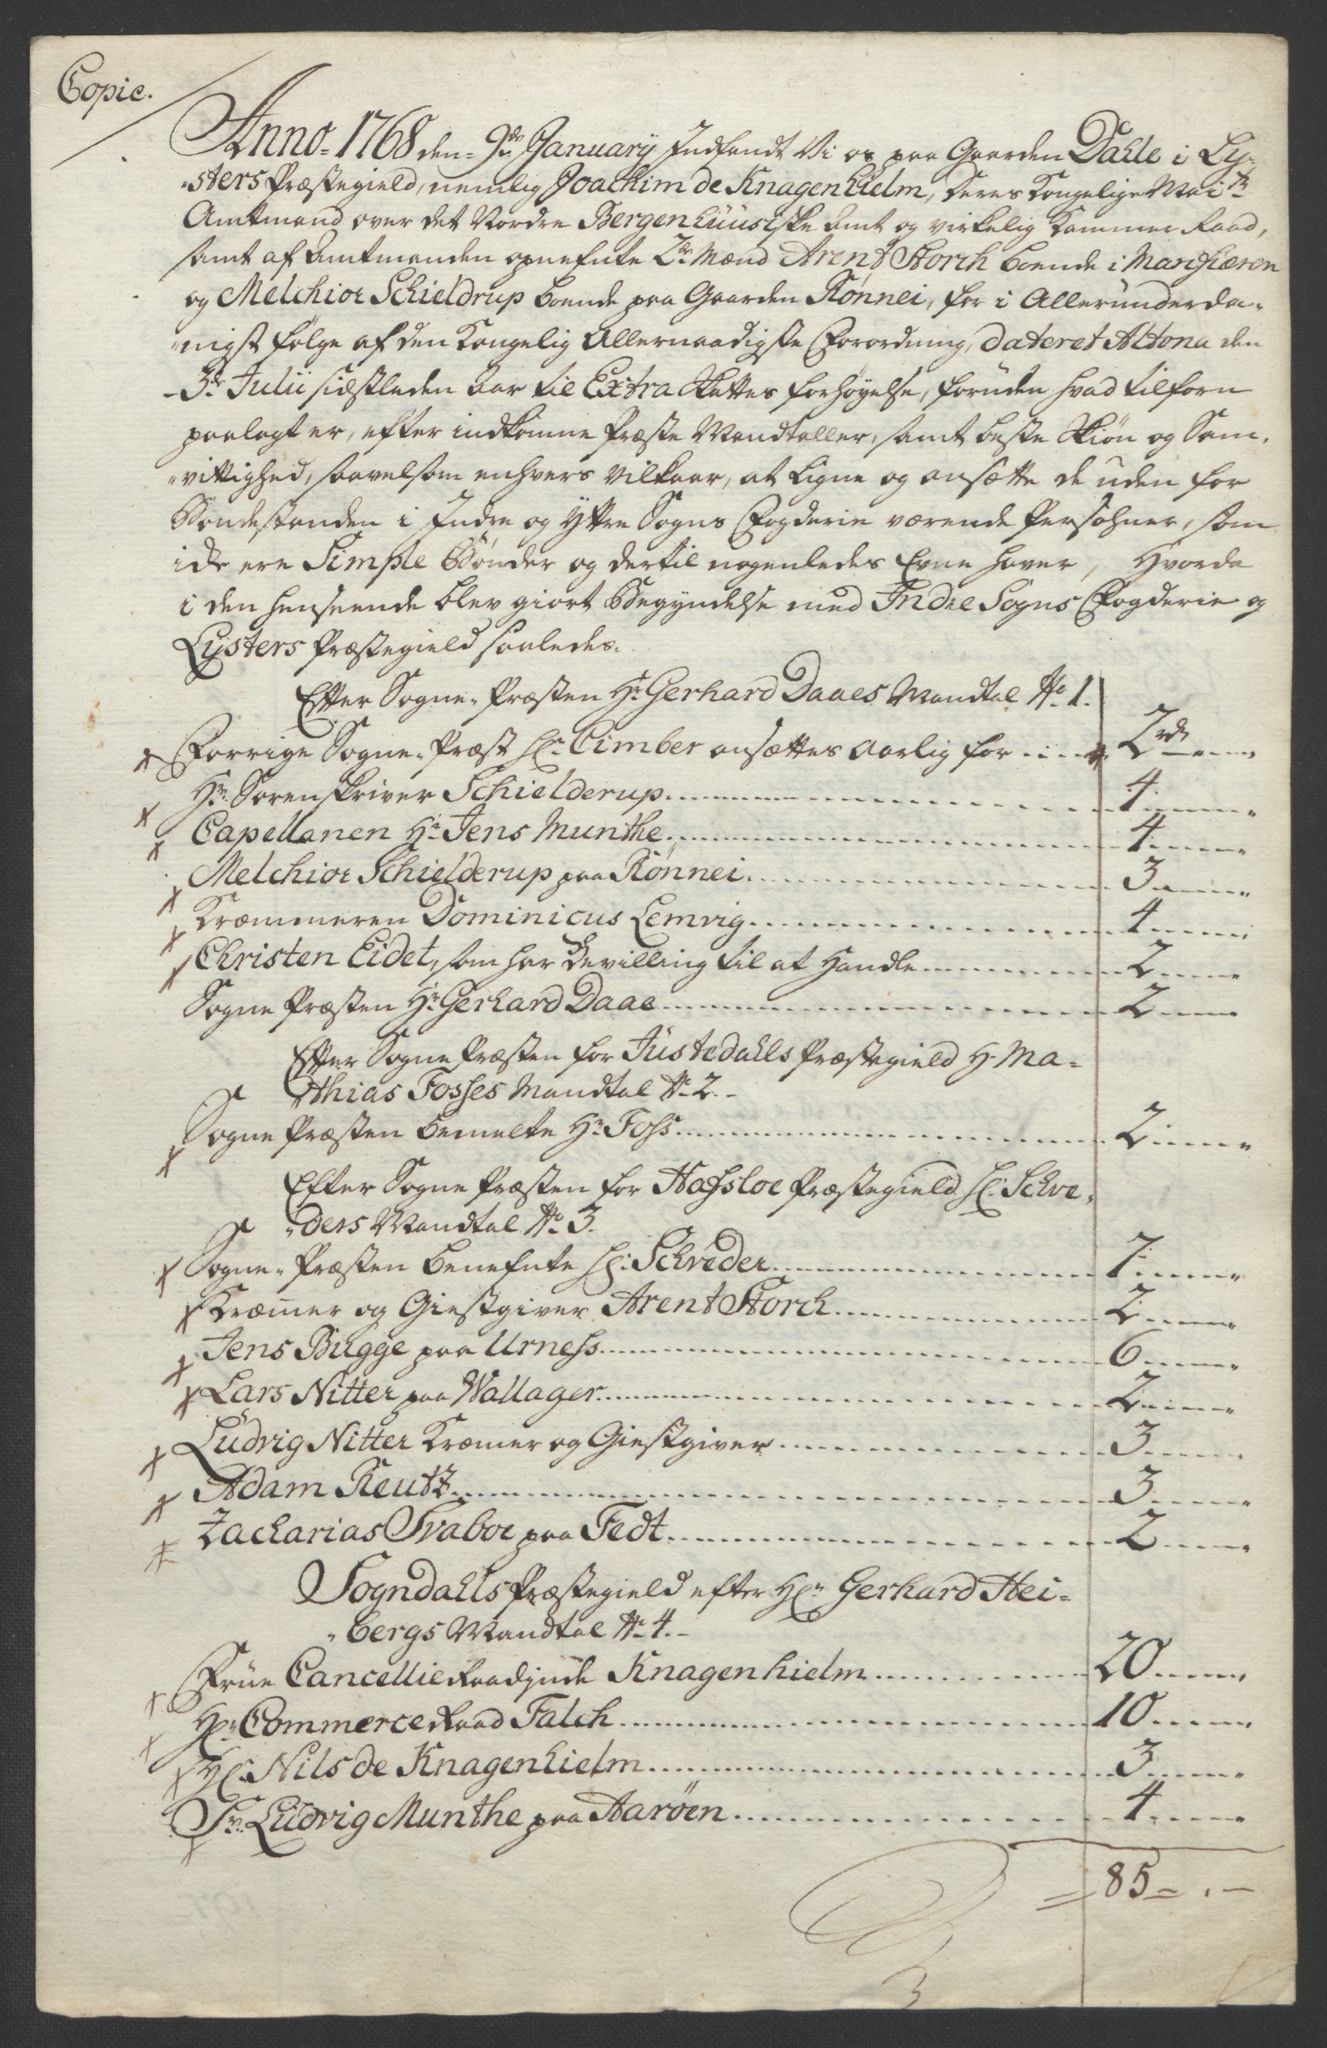 Copie.
Anno 1768 den 9de January Indfandt Vi os paa Gaarden Dahle i Ly-
sters Præstegield, nemlig Joachim de Knagenhielm, Deres Kongelige Maits
Amtmand over det Nordre Bergenhuusiske Amt og virkelig Kammer Raad,
samt af Amtmanden opnefnte 2de Mænd Arent Storch boende i Marifiæren
og Melchior Schieldrup boende paa Gaarden Rönnei, for i Allerunderda-
nigst følge af den Kongelig Allernaadigste Forordning, dateret Altona den
3de Julii sidstleden Aar til Extra Skattes forhøyelse, foruden hvad tilforn
paalagt er, efter indkomne Præste Mandtaller, samt beste Skiøn og Sam-
vittighed, saavelsom enhvers Vilkaar, at ligne og ansætte de uden for
Bondestanden i Indre og Yttre Sogns Fogderie værende Persohner, som
icke ere Simple Bønder og dertil nogenledes Evne haver, Hvorda
i den henseende blev giort Begyndelse med Indre Sogns Fogderie og
Lysters Præstegield saaledes.
Efter Sogne-Præsten Hr Gerhard Daaes Mandtal No 1.
Forrige Sogne-Præst Hr Cimber ansættes aarlig for 2rdr
Hr Sorenskriver Schielderup 4
Capellanen Hr Jens Munthe 4
Melchior Schielderup paa Rönnei 3
Kræmmeren Dominicus Lemvig 4
Christen Eidet, som har Bevilling til at Handle 2
Sogne Præsten Hr Gerhard Daae 2
Efter Sogne Præsten for Justedahls Præstegield Hr Ma-
thias Fosses Mandtal No 2.
Sogne Præsten bemelte Hr Foss 2
Efter Sogne Præsten for Hafsloe Præstegield Hr Schrø-
ders Mandtal No 3.
Sogne-Præsten benefnte Hr Schrøder 7
Kræmer og Giestgiver Arent Storch 2
Jens Bugge paa Urness 6
Lars Nitter paa Wallager 2
Ludvig Nitter Kræmer og Giestgiver 3
Adam Reutz 3
Zacharias Svaboe paa Fedt 2
Sogndahls Præstegield efter Hr Gerhard Hei-
bergs Mandtal No 4.
Frue CancellieRaadinde Knagenhielm 20
Hr CommerceRaad Falch 10
Hr Nils de Knagenhielm 3
Sr Ludvig Munthe paa Aaröen 4
= 85 -.-